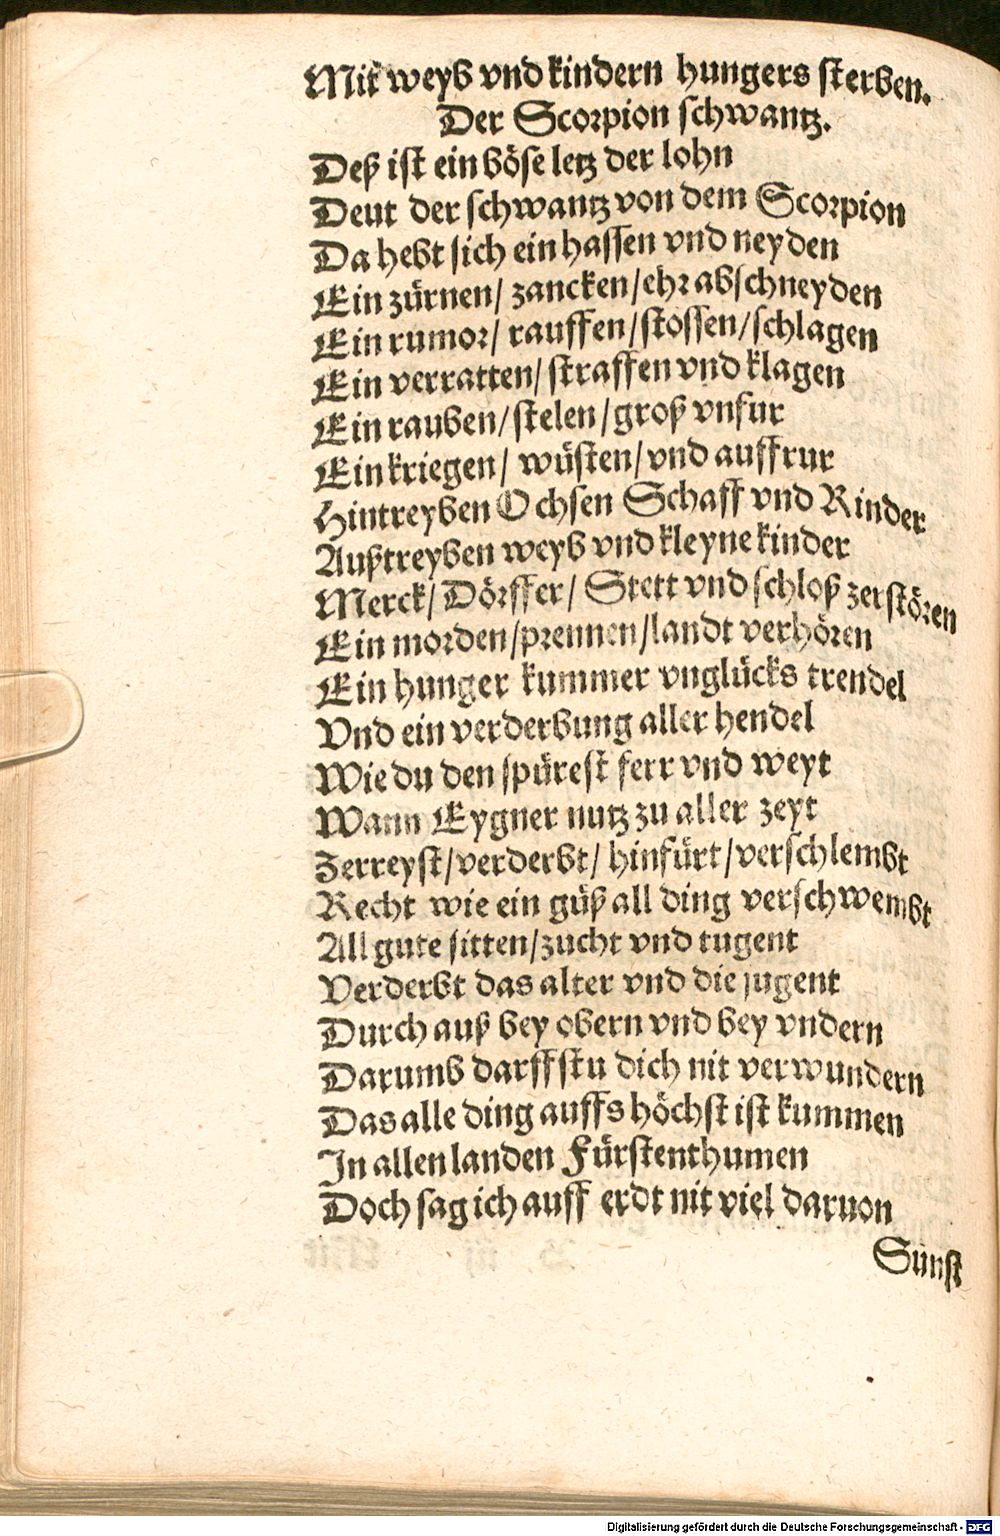 Mit weyb vnd kindern hungers sterben.
Der Scorpion schwantz.
Deß ist ein böse letz der lohn
Deut der schwantz von dem Scorpion
Da hebt sich ein hassen vnd neyden
Ein zürnen/ zancken/ehr abschneyden
Ein rumor/ rauffen/stossen/schlagen
Ein verratten/straffen vnd klagen
Ein rauben/stelen/groß vnfur
Ein kriegen/ wüsten/vnd auffrur
Hintreyben Ochsen Schaff vnd Rinder
Außtreyben weyb vnd kleyne kinder
Merck/ Dörffer/ Stett vnd schloß zerstören
Ein morden/prennen/landt verhören
Ein hunger kummer vnglücks trendel
Vnd ein verderbung aller hendel
Wie du den spürest ferr vnd weyt
Wann Eygner nutz zu aller zeyt
Zerreyst/verderbt/ hinfürt/verschlembt
Recht wie ein güß all ding verschwembt
All gute sitten/zucht vnd tugent
Verderbt das alter vnd die jugent
Durch auß bey obern vnd bey vndern
Darumb darffstu dich nit verwundern
Das alle ding auffs höchst ist kummen
In allen landen Fürstenthumen
Doch sag ich auff erdt nit viel daruon
Sunst
Digitalisierung gefördert durch die Deutsche Forschungsgemeinschaft - DFG